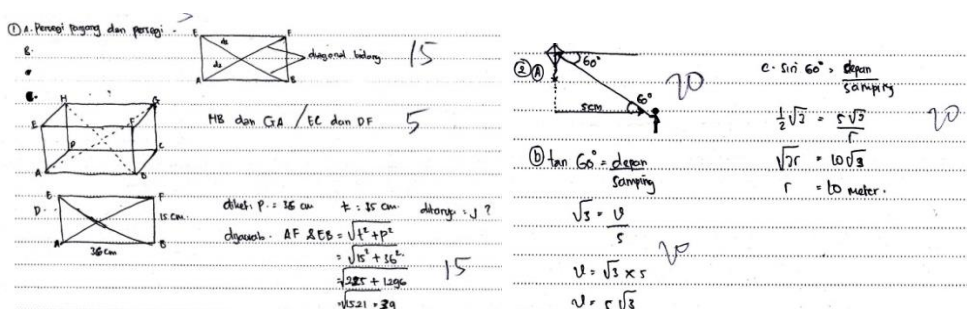 ① A. Persegi panjang dan persegi.
B.
E F
ds
ds
diagonal bidang
A B
15
H G
E F
D C
A B
HB dan GA / EC dan DF
5
E F
D.
15 cm
A B
36 cm
diket. P. = 36 cm t = 15 cm ditanya = ?
dijawab. AF & EB = √t² + p²
= √15² + 36²
= √225 + 1296
= √1521 = 39
15
② Ⓐ
60°
60°
5cm
20
ⓑ tan 60° = depan
samping
√3 = v
5
v = √3 x 5
v = 5√3
20
c. sin 60° = depan
samping
½√3 = 5√3
r
= 10√3
r = 10 meter.
20